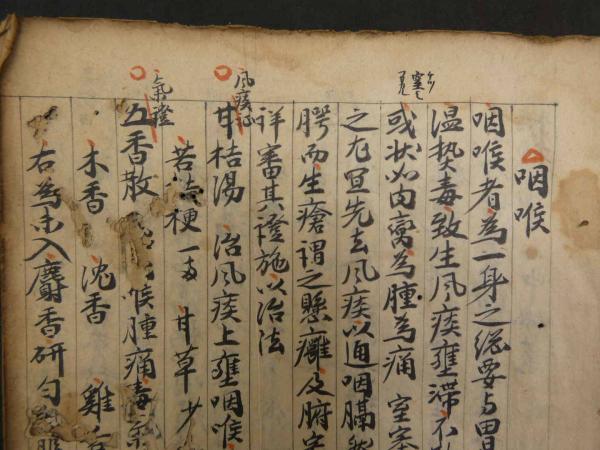 咽喉
咽喉者為一身之總要与胃
温热毒致生风痰壅滞不
或状如肉脔為腫為痛窒塞
之尤宜先去风痰以通咽膈
腭而生瘡謂之懸癰及腑
詳審其證施以治法
风痰
甘桔湯 治风痰上壅咽喉
苦桔梗一 甘草少
氣證
五香散 喉腫痛毒氣
木香 沈香 雞
右為末入麝香研匀